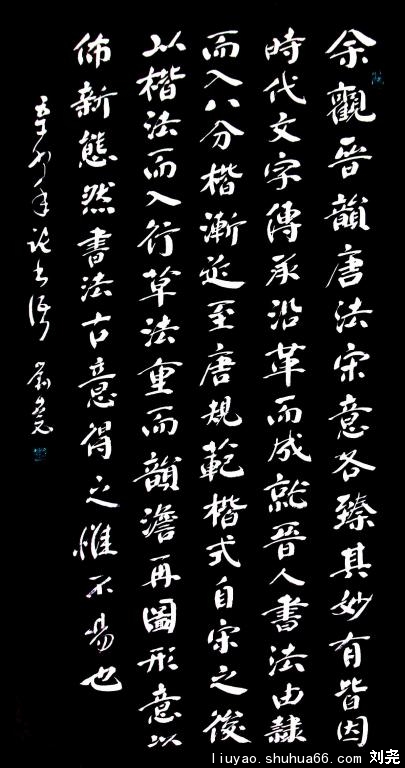 余觀晉韻唐法宋意各臻其妙有皆因
時代文字傳承沿革而成就晉人書法由隸
而入八分楷漸延至唐規範楷式自宋之後
以楷法而入行草法重而韻澹再圖形意以
佈新態然書法古意得之惟不易也
年论书语 劉堯
liuyao.shuhua66.com 刘尧